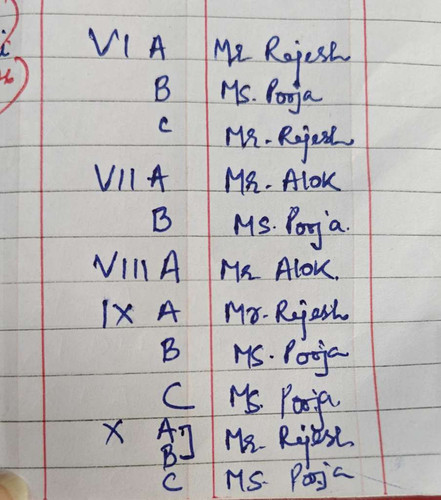 VI A Mr Rajesh
B Ms. Pooja
C Mr. Rajesh
VII A Mr. Alok
B Ms. Pooja.
VIII A Mr Alok.
IX A Mr. Rajesh
B Ms. Pooja
C Ms. Pooja
X A
B ] Mr. Rajesh
C Ms. Pooja